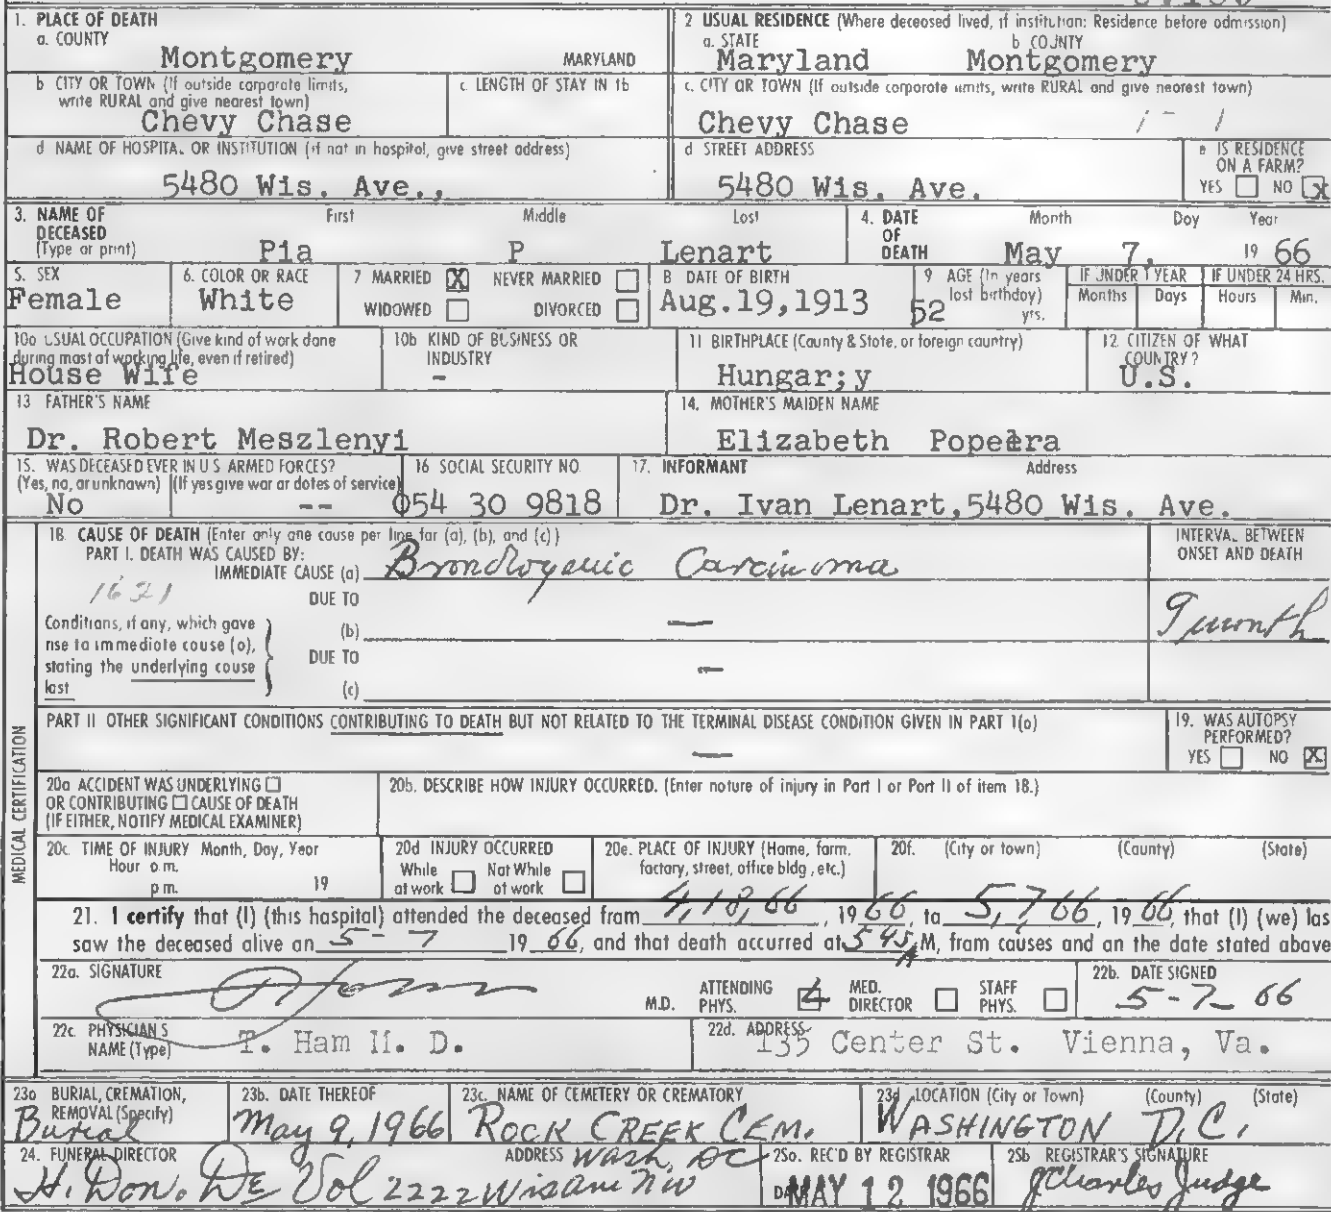 1. PLACE OF DEATH
a. COUNTY
Montgomery MARYLAND
2 USUAL RESIDENCE (Where deceased lived, if institution: Residence before admission)
a. STATE b COUNTY
Maryland Montgomery
b CITY OR TOWN (If outside corporate limits, write RURAL and give nearest town)
Chevy Chase
c. LENGTH OF STAY IN 1b
c. CITY OR TOWN (If outside corporate limits, write RURAL and give nearest town)
Chevy Chase 1 - 1
d NAME OF HOSPITAL OR INSTITUTION (if not in hospital, give street address)
5480 Wis. Ave.,
d STREET ADDRESS
5480 Wis. Ave.
e IS RESIDENCE ON A FARM?
YES NO X
3. NAME OF DECEASED (Type or print)
First Middle Last
Pia P Lenart
4. DATE OF DEATH
Month Day Year
May 7, 19 66
5. SEX
Female
6. COLOR OR RACE
White
7 MARRIED X NEVER MARRIED
WIDOWED DIVORCED
8 DATE OF BIRTH
Aug.19,1913
9 AGE (In years last birthday)
52 yrs.
IF UNDER 1 YEAR
Months Days
IF UNDER 24 HRS.
Hours Min.
10a USUAL OCCUPATION (Give kind of work done during most of working life, even if retired)
House Wife
10b KIND OF BUSINESS OR INDUSTRY
-
11 BIRTHPLACE (County & State, or foreign country)
Hungar;y
12 CITIZEN OF WHAT COUNTRY?
U.S.
13 FATHER'S NAME
Dr. Robert Meszlenyi
14. MOTHER'S MAIDEN NAME
Elizabeth
15. WAS DECEASED EVER IN U S ARMED FORCES?
(Yes, no, or unknown) (If yes give war or dates of service)
No --
16 SOCIAL SECURITY NO
054 30 9818
17. INFORMANT Address
Dr. Ivan Lenart,5480 Wis. Ave.
18 CAUSE OF DEATH (Enter only one cause per line for (a), (b), and (c))
PART I. DEATH WAS CAUSED BY:
IMMEDIATE CAUSE (a) Bronchogenic Carcinoma
1621
DUE TO
Conditions, if any, which gave rise to immediate cause (a), stating the underlying cause last
(b) —
DUE TO
(c) —
INTERVAL BETWEEN ONSET AND DEATH
9 month
PART II OTHER SIGNIFICANT CONDITIONS CONTRIBUTING TO DEATH BUT NOT RELATED TO THE TERMINAL DISEASE CONDITION GIVEN IN PART 1(a)
—
19. WAS AUTOPSY PERFORMED?
YES NO X
MEDICAL CERTIFICATION
20a ACCIDENT WAS UNDERLYING
OR CONTRIBUTING CAUSE OF DEATH
(IF EITHER, NOTIFY MEDICAL EXAMINER)
20b. DESCRIBE HOW INJURY OCCURRED. (Enter nature of injury in Part I or Part II of item 18.)
20c. TIME OF INJURY Month, Day, Year
Hour a.m.
p m. 19
20d INJURY OCCURRED
While at work Not While at work
20e. PLACE OF INJURY (Home, farm, factory, street, office bldg, etc.)
20f. (City or town) (County) (State)
21. I certify that (I) (this hospital) attended the deceased from 4,18,66, 19 66, to 5,7 66, 19 66, that (I) (we) las
saw the deceased alive on 5-7 19 66, and that death occurred at 5 45 A M, from causes and on the date stated above
22a. SIGNATURE
M.D. ATTENDING PHYS. MED. DIRECTOR STAFF PHYS.
22b. DATE SIGNED
5-7-66
22c PHYSICIAN'S NAME (Type)
T. Ham M. D.
22d. ADDRESS
135 Center St. Vienna, Va.
23a BURIAL, CREMATION, REMOVAL (Specify)
Burial
23b. DATE THEREOF
May 9, 1966
23c. NAME OF CEMETERY OR CREMATORY
ROCK CREEK CEM.
23d LOCATION (City or Town) (County) (State)
WASHINGTON D.C.
24. FUNERAL DIRECTOR ADDRESS
H. Don. De Vol 2222 Wis Ave NW Wash, DC
25a. REC'D BY REGISTRAR
DATE MAY 12 1966
25b REGISTRAR'S SIGNATURE
J Charles Judge